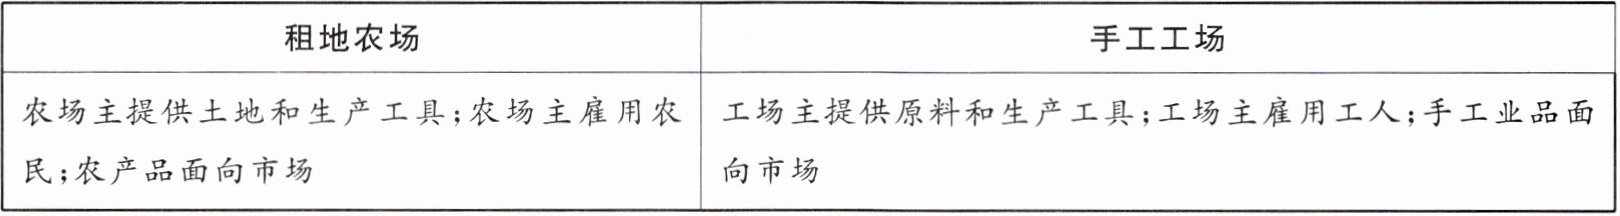 租地农场
手工工场
农场主提供土地和生产工具;农场主雇用农
民;农产品面向市场
工场主提供原料和生产工具;工场主雇用工人;手工业品面
向市场